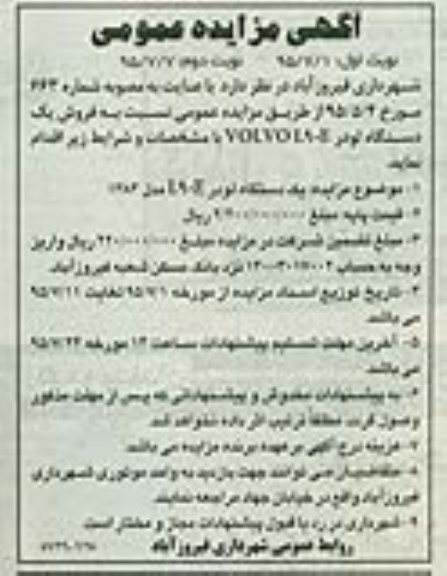 آگهی مزایده عمومی
نوبت اول: ۹۵/۷/۱ نوبت دوم: ۹۵/۷/۷
شهرداری فیروزآباد در نظر دارد با عنایت به مصوبه شماره ۶۶۳
مورخ ۹۵/۵/۴ از طریق مزایده عمومی نسبت به فروش یک
دستگاه لودر VOLVO L90-E با مشخصات و شرایط زیر اقدام
نماید.
۱- موضوع مزایده: یک دستگاه لودر L90-E مدل
۲- قیمت پایه: مبلغ ریال
۳- مبلغ تضمین شرکت در مزایده مبلغ ۲۲۰/۰۰۰/۰۰۰ ریال واریز
وجه به حساب نزد بانک مسکن شعبه فیروزآباد.
۴- تاریخ توزیع اسناد مزایده از مورخه ۹۵/۷/۱ لغایت ۹۵/۷/۱۱
می باشد.
۵- آخرین مهلت تسلیم پیشنهادات ساعت ۱۳ مورخه ۹۵/۷/۲۲
می باشد.
۶- به پیشنهادات مخدوش و پیشنهاداتی که پس از مهلت مذکور
وصول گردد مطلقا ترتیب اثر داده نخواهد شد.
۷- هزینه درج آگهی بر عهده برنده مزایده می باشد.
۸- متقاضیان می توانند جهت بازدید به واحد موتوری شهرداری
فیروزآباد واقع در خیابان جهاد مراجعه نمایند.
۹- شهرداری در رد یا قبول پیشنهادات مجاز و مختار است.
روابط عمومی شهرداری فیروزآباد